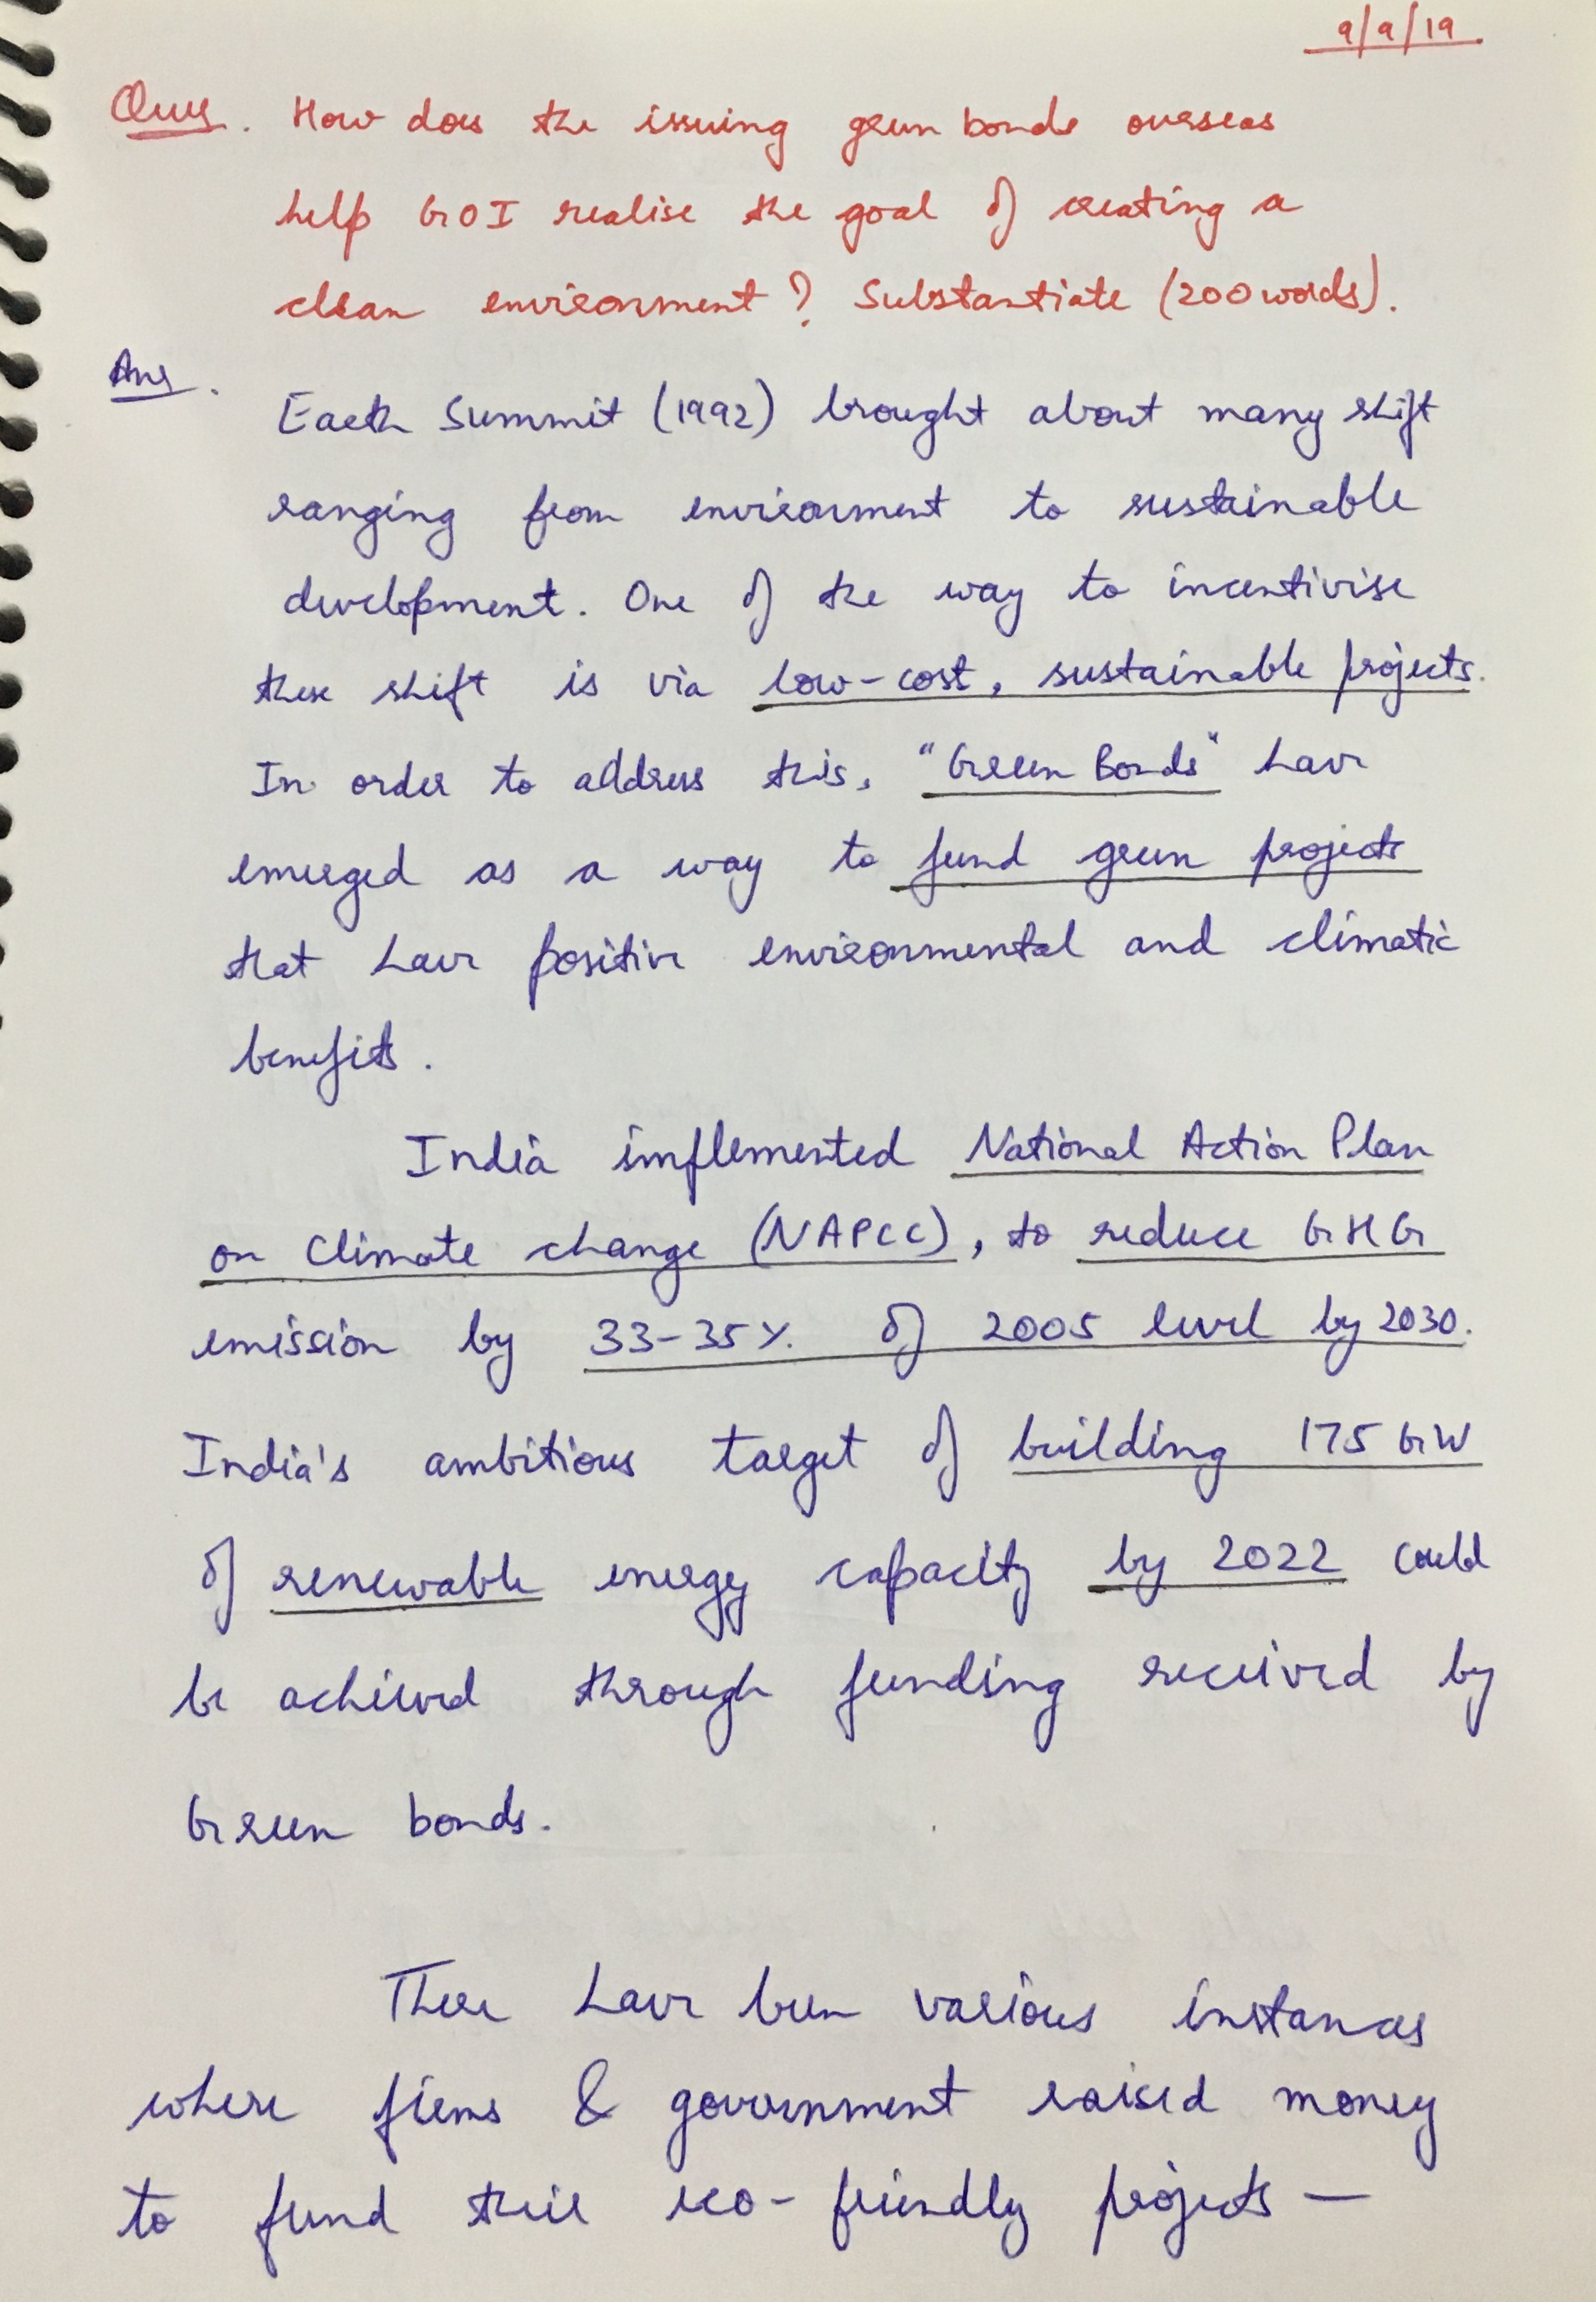 9/9/19
Ques. How does the issuing green bonds overseas
help GOI realise the goal of creating a
clean environment? Substantiate (200 words).
Ans. Earth Summit (1992) brought about many shift
ranging from environment to sustainable
development. One of the way to incentivise
these shift is via low-cost, sustainable projects.
In order to address this, "Green Bonds" have
emerged as a way to fund green projects
that have positive environmental and climatic
benefits.
India implemented National Action Plan
on Climate change (NAPCC), to reduce GHG
emission by 33-35% of 2005 level by 2030.
India's ambitious target of building 175 GW
of renewable energy capacity by 2022 could
be achieved through funding received by
Green bonds.
There have been various instances
where firms & government raised money
to fund their eco-friendly projects —